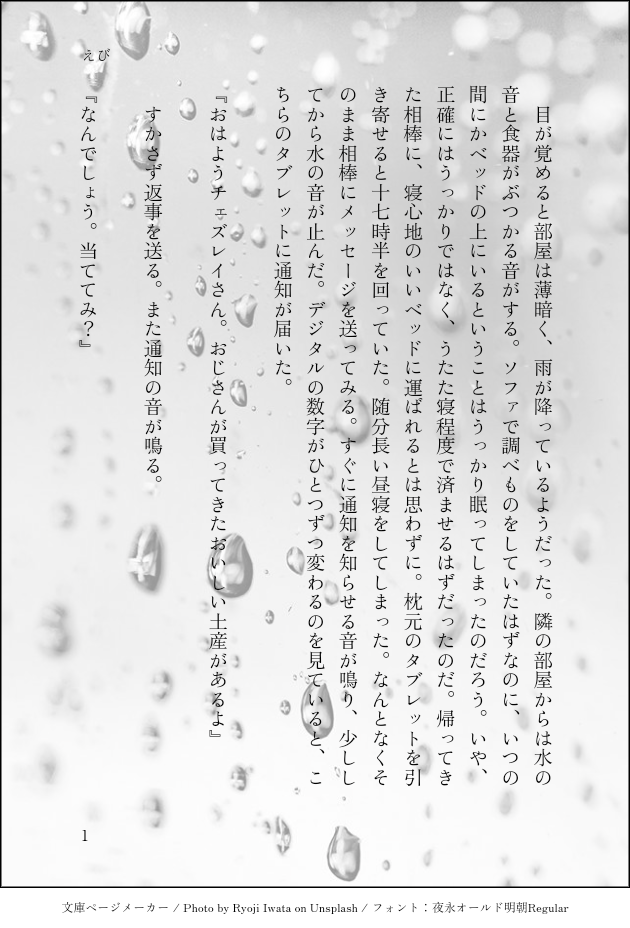 えび
　目が覚めると部屋は薄暗く、雨が降っているようだった。隣の部屋からは水の
音と食器がぶつかる音がする。ソファで調べものをしていたはずなのに、いつの
間にかベッドの上にいるということはうっかり眠ってしまったのだろう。いや、
正確にはうっかりではなく、うたた寝程度で済ませるはずだったのだ。帰ってき
た相棒に、寝心地のいいベッドに運ばれるとは思わずに。枕元のタブレットを引
き寄せると十七時半を回っていた。随分長い昼寝をしてしまった。なんとなくそ
のまま相棒にメッセージを送ってみる。すぐに通知を知らせる音が鳴り、少しし
てから水の音が止んだ。デジタルの数字がひとつずつ変わるのを見ていると、こ
ちらのタブレットに通知が届いた。
『おはようチェズレイさん。おじさんが買ってきたおいしい土産があるよ』
　すかさず返事を送る。また通知の音が鳴る。
『なんでしょう。当ててみ？』
1
文庫ページメーカー / Photo by Ryoji Iwata on Unsplash / フォント：夜永オールド明朝Regular